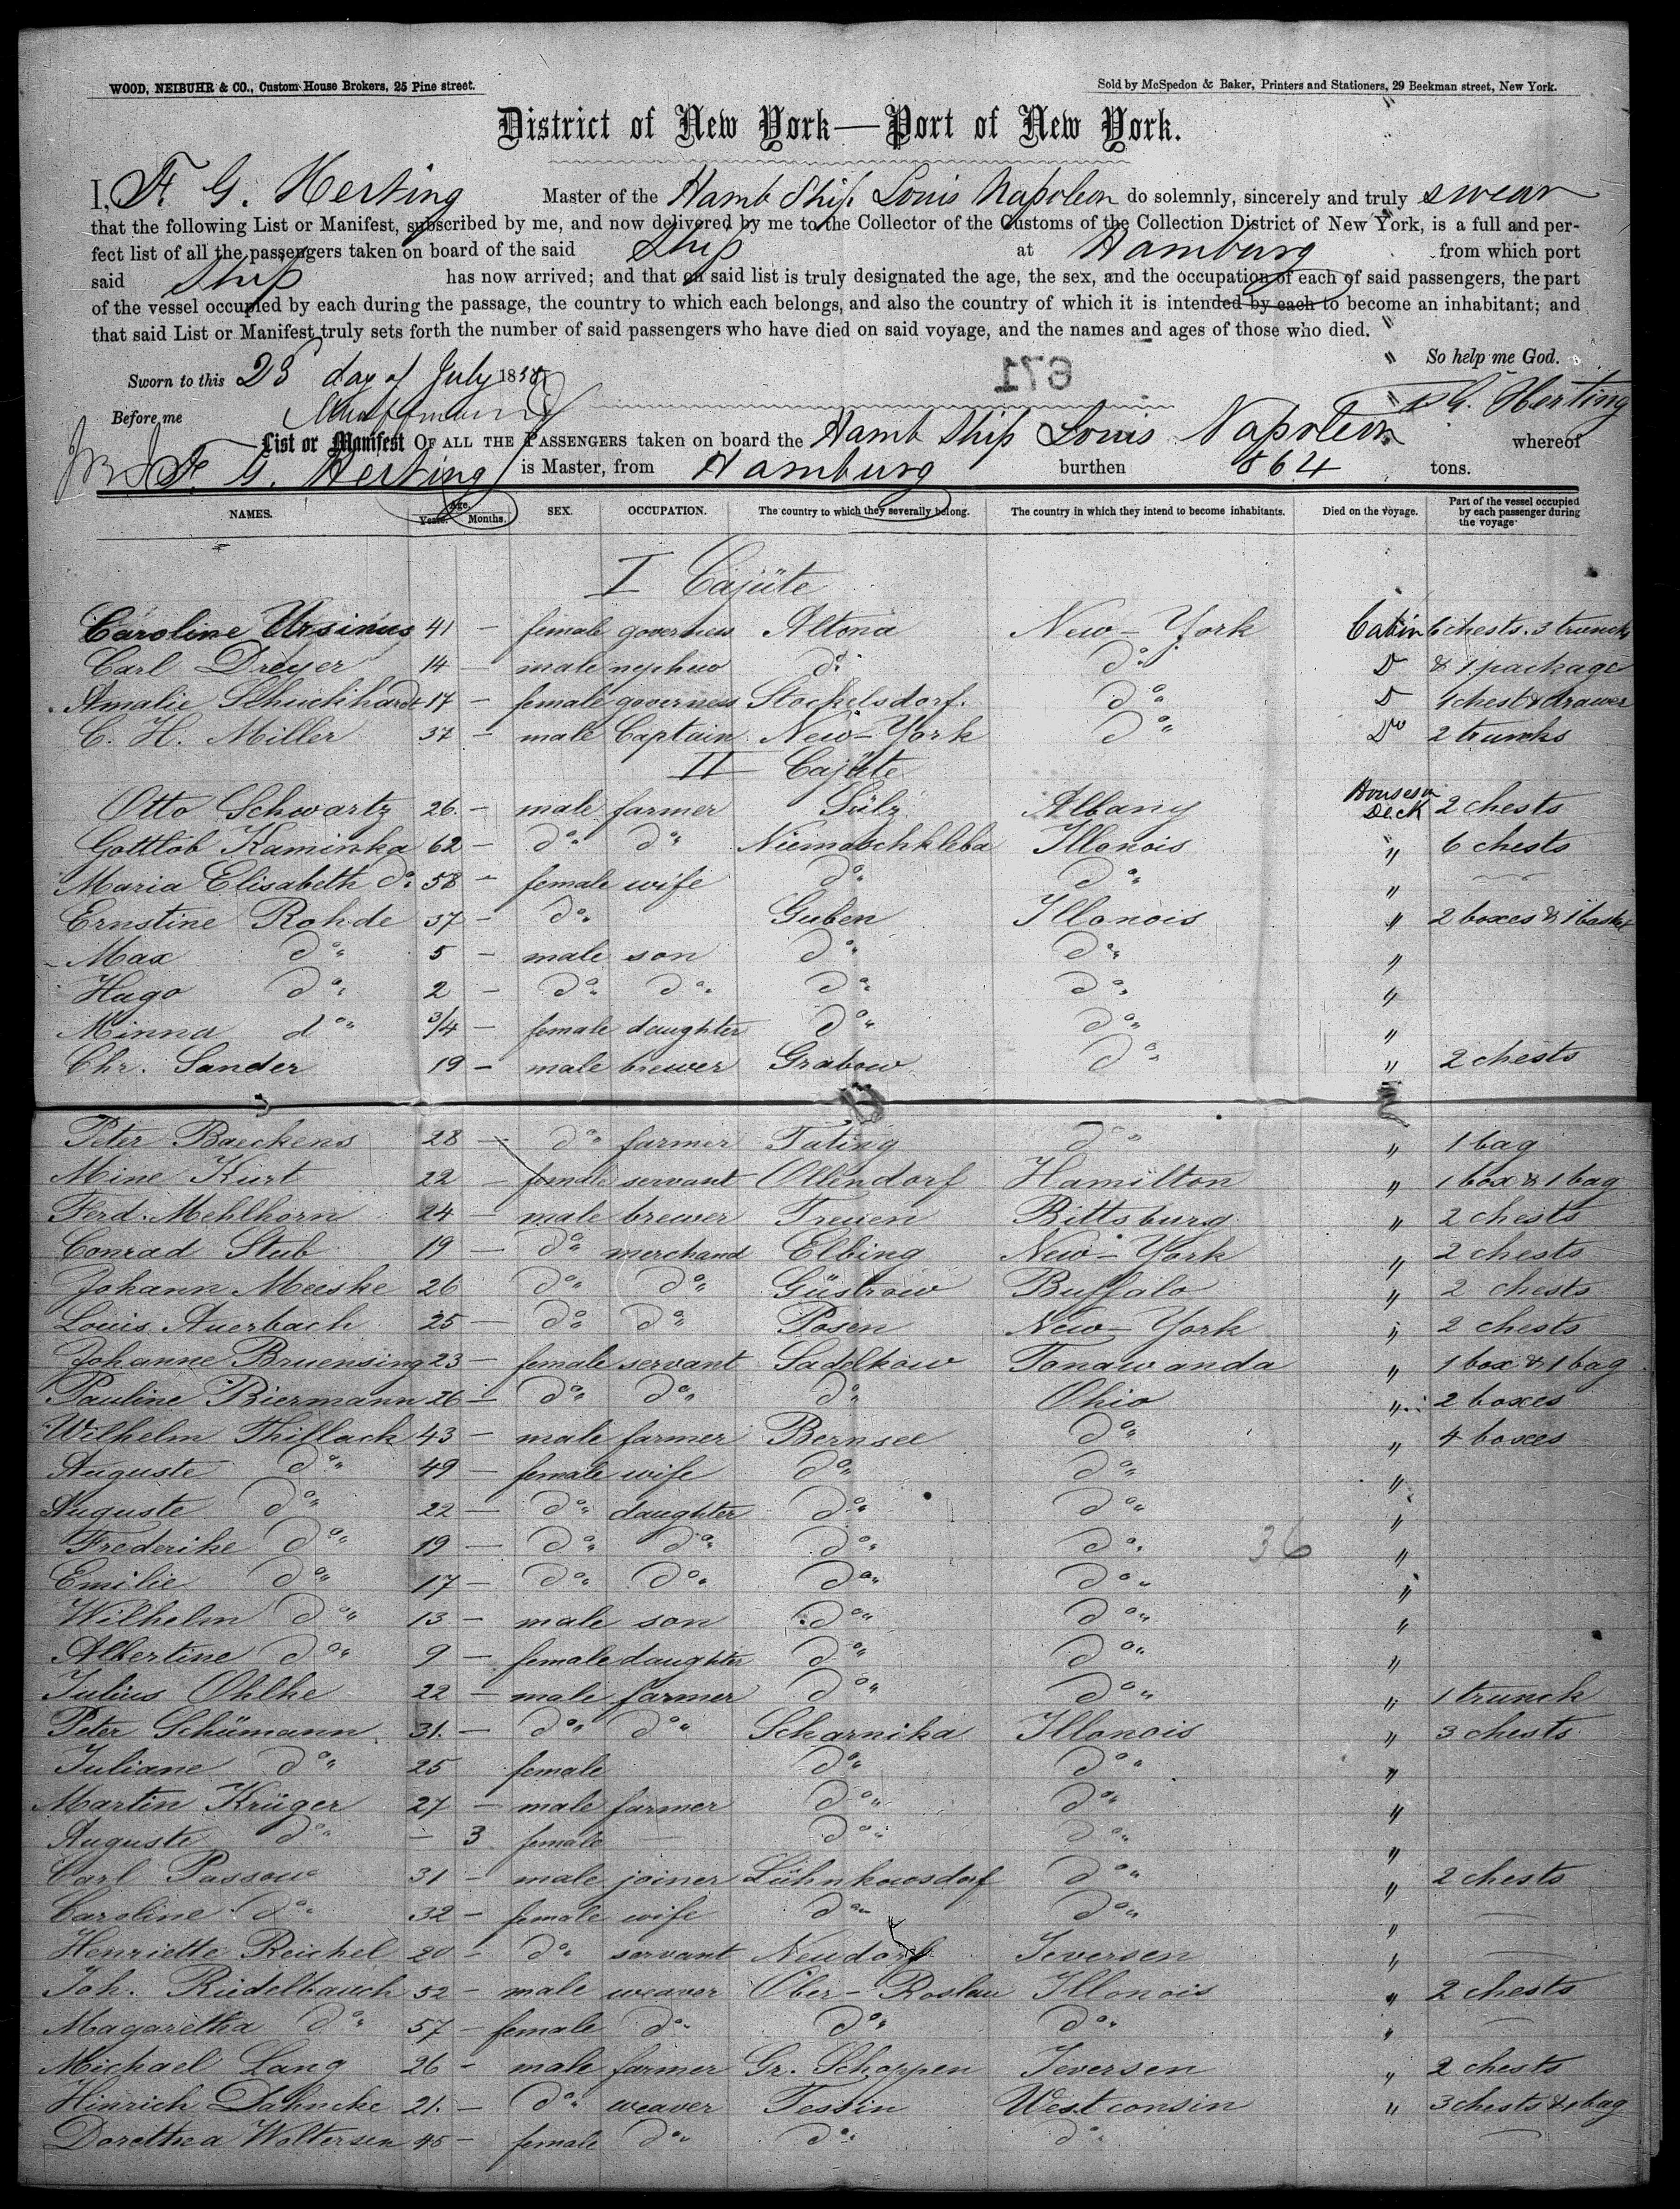 WOOD, NEIBUHR & CO., Custom House Brokers, 25 Pine street.
Sold by McSpedon & Baker, Printers and Stationers, 29 Beekman street, New York.
District of New York—Port of New York.
I, F. G. Herting Master of the Hamb Ship Louis Napoleon do solemnly, sincerely and truly swear
that the following List or Manifest, subscribed by me, and now delivered by me to the Collector of the Customs of the Collection District of New York, is a full and per-
fect list of all the passengers taken on board of the said Ship at Hamburg from which port
said Ship has now arrived; and that on said list is truly designated the age, the sex, and the occupation of each of said passengers, the part
of the vessel occupied by each during the passage, the country to which each belongs, and also the country of which it is intended by each to become an inhabitant; and
that said List or Manifest truly sets forth the number of said passengers who have died on said voyage, and the names and ages of those who died.
So help me God.
Sworn to this 28 day of July 185
671
F G. Herting
Before me
List or Manifest OF ALL THE PASSENGERS taken on board the Hamb Ship Louis Napoleon whereof
F. G. Herting is Master, from Hamburg burthen 864 tons.
NAMES. Age. Years. Months. SEX. OCCUPATION. The country to which they severally belong. The country in which they intend to become inhabitants. Died on the voyage. Part of the vessel occupied by each passenger during the voyage
I Cajüte
Caroline Ursinus 41 — female governess Altona New-York Cabin 6 chests. 3 truncks
Carl Dreyer 14 — male nephew do. do. D & 1 package
Amalie Schuckhardt 17 — female governess Stockelsdorf. do D 1 chest & drawer
C. H. Miller 37 — male Captain New-York do Do 2 truncks
II Cajüte
Otto Schwartz 26. — male farmer Sülz Albany Houses on Deck 2 chests
Gottlob Kaminka 62 — do do Niemaschkleba Illonois " 6 chests
Maria Elisabeth do. 58 — female wife do do "
Ernstine Rohde 37 — do Guben Illonois " 2 boxes & 1 basket
Max do 5 — male son do do "
Hugo do 2 — do do do do "
Minna do 3/4 — female daughter do do "
Chr. Sander 19 — male brewer Grabow do " 2 chests
Peter Baeckens 28 — do farmer Tating do " 1 bag
Mine Kurt 22 — female servant Ollendorf Hamilton " 1 box & 1 bag
Ferd. Mehlhorn 24 — male brewer Treuen Bittsburg " 2 chests
Conrad Stub 19 — do merchand Elbing New-York " 2 chests
Johann Meeske 26 do do Güstrow Buffalo " 2 chests
Louis Auerbach 25 — do do Posen New-York " 2 chests
Johanne Bruensing 23 — female servant Sadelkow Tonawanda " 1 box & 1 bag
Pauline Biermann 26 — do do do Ohio " 2 boxes
Wilhelm Thillack 43 — male farmer Bernsee do " 4 boxes
Auguste do 49 — female wife do do "
Auguste do 22 — do daughter do do "
Frederike do 19 — do do do do "
36
Emilie do 17 — do do do do "
Wilhelm do 13 — male son do do "
Albertine do 9 — female daughter do do "
Julius Ohlke 22 — male farmer do do " 1 trunck
Peter Schümann 31. — do do Scharnika Illonois " 3 chests
Juliane do 25 female do do "
Martin Krüger 27 — male farmer do do "
Auguste do — 3 female — do do "
Carl Passow 31 — male joiner Lühnkowsdorf do " 2 chests
Caroline do 32 — female wife do do "
Henriette Reichel 20 — do servant Neudorf Jeversen "
Joh. Riedelbauch 52 — male weaver Ober-Roslau Illonois " 2 chests
Magaretha do 57 — female do do do "
Michael Lang 26 — male farmer Gr. Schoppen Jeversen " 2 chests
Hinrich Dahncke 21. — do weaver Tessin Westconsin " 3 chests & 1 bag
Dorethea Woltersen 45 — female do do do